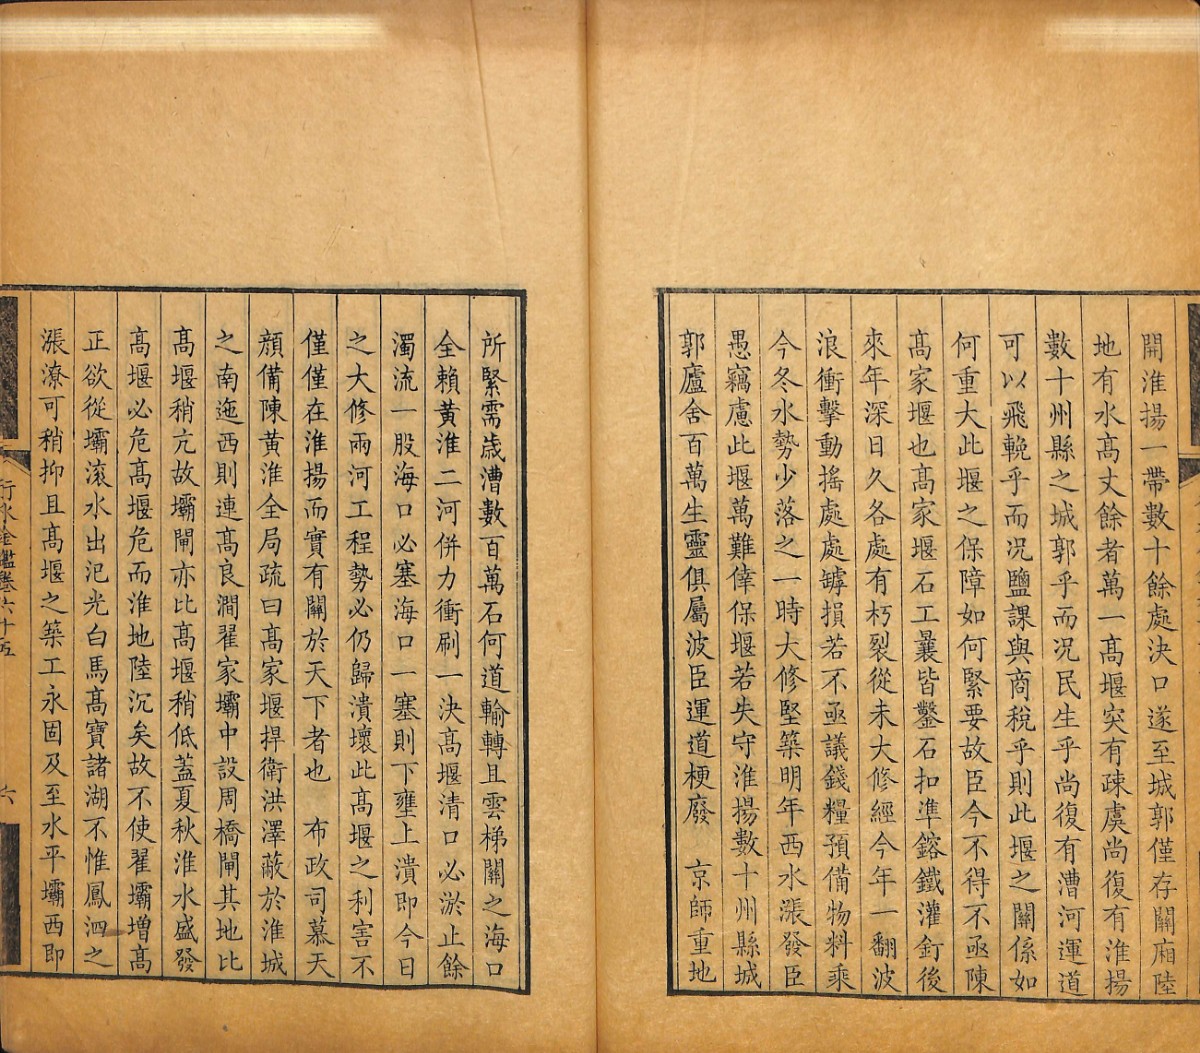 開淮揚一帶數十餘處決口遂至城郭僅存關廂陸
地有水髙丈餘者萬一髙堰突有疎虞尚復有淮揚
數十州縣之城郭乎而况民生乎尚復有漕河運道
可以飛輓乎而况鹽課與商稅乎則此堰之關係如
何重大此堰之保障如何緊要故臣今不得不亟陳
髙家堰也髙家堰石工曩皆鑿石扣凖鎔鐵灌釘後
來年深日久各處有朽裂從未大修經今年一翻波
浪衝擊動摇處處罅損若不亟議錢糧預備物料乘
今冬水勢少落之一時大修堅築明年西水漲發臣
愚竊慮此堰萬難倖保堰若失守淮揚數十州縣城
郭廬舍百萬生靈俱屬波臣運道梗廢　京師重地
所緊需歲漕數百萬石何道輸轉且雲梯關之海口
全賴黄淮二河併力衝刷一決髙堰清口必淤止餘
濁流一股海口必塞海口一塞則下壅上潰即今日
之大修兩河工程勢必仍歸潰壞此髙堰之利害不
僅僅在淮揚而實有關於天下者也　布政司慕天
顔備陳黄淮全局疏曰髙家堰捍衛洪澤蔽於淮城
之南迤西則連髙良澗翟家壩中設周橋閘其地比
髙堰稍亢故壩閘亦比髙堰稍低蓋夏秋淮水盛發
髙堰必危髙堰危而淮地陸沉矣故不使翟壩增髙
正欲從壩滚水出汜光白馬髙寶諸湖不惟鳳泗之
漲潦可稍抑且髙堰之築工永固及至水平壩西即
行水金鑑卷六十五
六